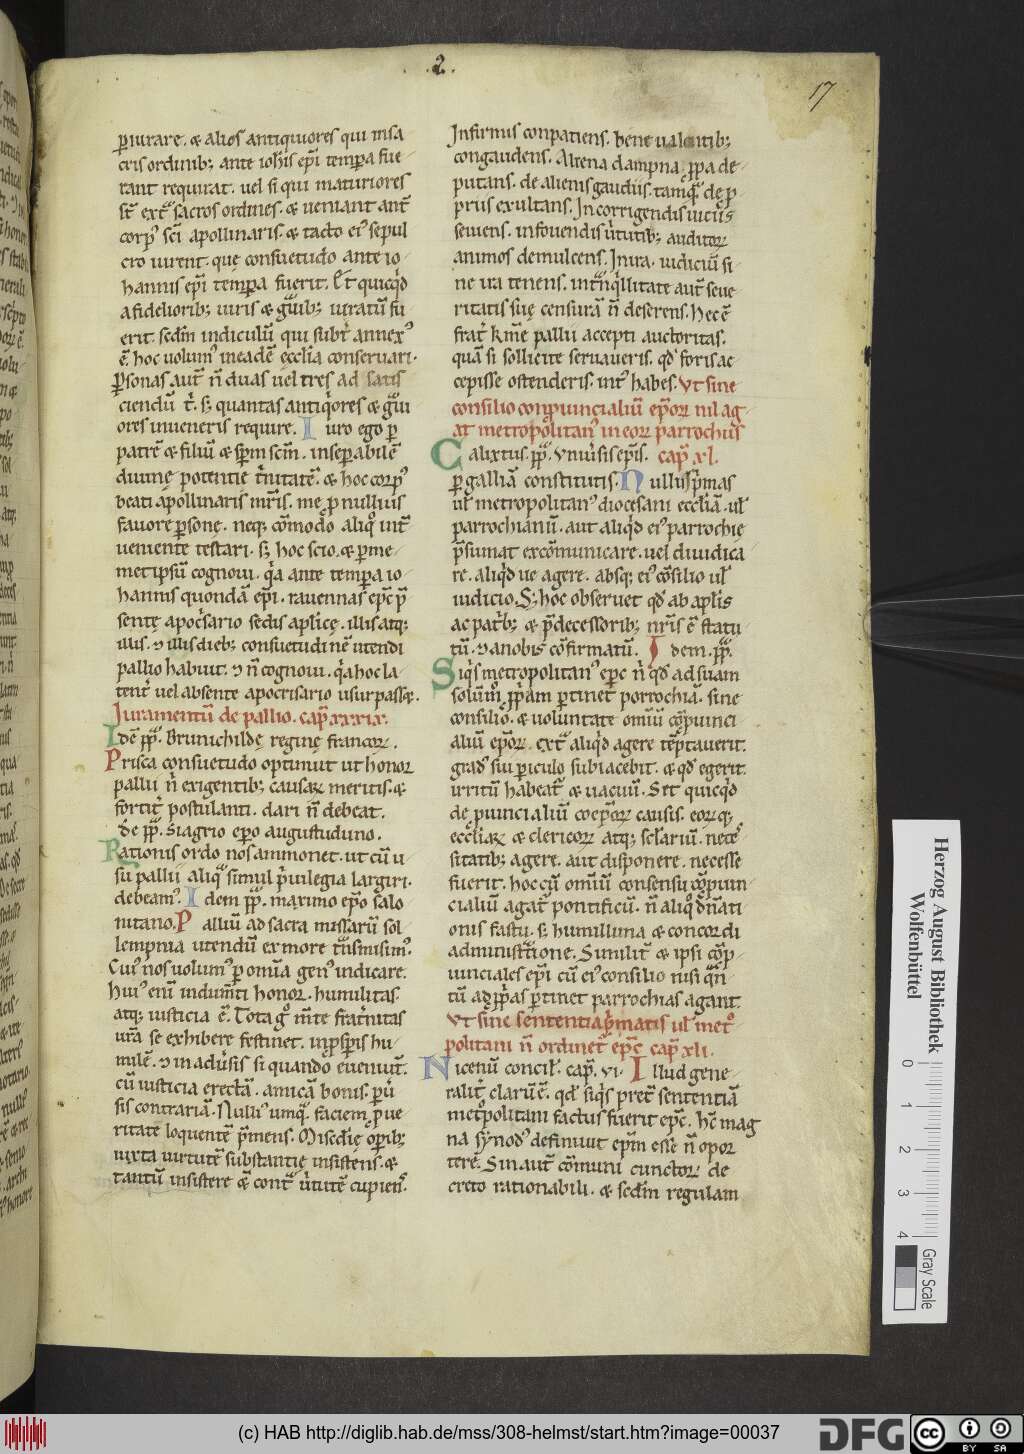 .2.
17
p̲iurare. & alios antiquiores qui in sa
cris ordinib; ante ioh̅is ep̅i temp̲a fue
rant requirat. uel si qui maturiores
st̅ ext͛ sacros ordines. & ueniant ant̅
corp' sc̅i apollinaris. & tacto ei' sepul
cro iurent. quę consuetudo ante io
hannis ep̅i temp̲a fuerit. Et quicq̇d
a fideliorib; uiris & gͣuib; iuratu̅ fu
erit. secd̅m indiculu̅ qui subt̾ annex'
e̅. hoc uolum' in eade̅ eccl̅ia conseruari.
P̲sonas aut̅ n̅ duas uel tres ad satis
ciendu̅ t̾. s; quantas antiq̇ores & gͣui
ores inueneris require. Iuro ego p̲
patre̅ & filiu̅ & sp̅m scm̅. insep̲abile̅
diuinę potentie t̾nitate̅. & hoc corp'
beati apollinaris mr̅is. me p̲ nullius
fauore p̲sonę. neq; co̅modo aliq̊ int̾
ueniente testari. s; hoc scio. & p̲ me
met ipsu̅ cognoui. q̇a ante temp̲a io
hannis quonda̅ ep̅i. rauennas ep̅c p̅
sentę apocrisario sedis apl̅icę. illis atq;
illis. & illis dieb; consuetudine̅ utendi
pallio habuit. & n̅ cognoui. q̇a hoc la
tent̾ uel absente apocrisario usurpasse.
Iuramentu̅ de pallio. cap̅ xxxix.
Ide̅ pp͛. Brunichildę reginę francoꝝ.
Prisca consuetudo optinuit ut honor
pallii n̅ exigentib; causaꝝ meritis. &
fortit̾ postulanti. dari n̅ debeat.
de̅ pp͛. Siagrio ep̅o augustuduno.
Rationis ordo nos ammonet. ut cu̅ u
su pallii aliqͣ simul p̾uilegia largiri.
debeam'. Idem pp͛. maximo ep̅o salo
nitano. Palliu̅ ad sacra missaru̅ sol
lempnia utendu̅ ex more tͣnsmisim'.
Cui' nos uolum' p̲ omnia gen' indicare.
Hui' eni̅ indum̅ti honor. humilitas
atq; iusticia e̅. Tota g̊ m̅te frat̾nitas
ur̅a se exhibere festinet. in p̲sp̲is hu
mile̅. & in adu̾sis si quando eueniu̅t.
cu̅ iusticia erecta̅. amica̅ bonis. p̲u̾
sis contraria̅. Nulli' umq̅. facie̅ p̲ ue
ritate loquente̅ p̅mens. Mis̅die̜ op̲ib;
iuxta uirtute̅ substantię insistens. &
tantu̅ insistere & cont͛ u̾tute̅ cupien'.
Infirmis conpatiens. bene ualentib;
congaudens. Aliena dampna p̲pa de
putans. de alienis gaudiis. tamq̅ᷓ de p̲
priis exultans. In corrigendis uiciis
seuiens. in fouendis u̾tutib; auditoꝝ
animos demulcens. In ira. iudiciu̅ si
ne ira tenens. in tͣnq̇llitate aut̅ seue
ritatis suę censura̅ n̅ deserens. Hec e̅
frat̾ k̅me pallii accepti auctoritas.
qua̅ si sollicite seruaueris. qd̅ foris ac
cepisse ostenderis. int' habes. Vt sine
consilio conp̲uincialiu̅ ep̅oꝝ nil ag
at metropolitan' in eoꝝ parrochiis
Calixtus. pp͛. vniu̾sis ep̅is. cap̅ xl.
p̲ gallia̅ constitutis. Nullus p̾mas
ul̅ metropolitan' diocesani eccl̅ia̅. ul̅
parrochianu̅. aut aliq̇d ei' parrochię
p̅sumat exco̅municare. uel diiudica
re. aliq̇d ue agere. absq; ei' co̅silio ul̅
iudicio. S; hoc obseruet qd̅ ab apl̅is
ac pat̾b; & p̅decessorib; nr̅is e̅ statu
tu̅. & a nobis co̅firmatu̅. Idem. pp͛.
Siq̇s metropolitan' ep̅c n̅ qd̅ ad suam
solu̅m̊ p̲p̾am p̲tinet porrochia̅. sine
consilio. & uoluntate om̅iu̅ co̅p̲uinci
aliu̅ ep̅oꝝ. ext͛ aliq̇d agere te̅ptauerit.
grad' sui p̲iculo subiacebit. & qd̅ egerit.
irritu̅ habeat̾ & uacuu̅. Set quicq̇d
de p̲uincialiu̅ coep̅oꝝ causis. eorq;
eccl̅iaꝝ & clericoꝝ atq; sclariu̅. neces
sitatib; agere. aut disponere. necesse
fuerit. hoc cu̅ om̅iu̅ consensu co̅p̲uin
cialiu̅ agat̾ pontificu̅. n̅ aliq̊ d̅nati
onis fastu. s; humillima & concordi
administͣtione. Similit̾ & ipsi co̅p̲
uinciales ep̅i cu̅ ei' consilio nisi qͣn
tu̅ ad p̲p̾as p̲tinet parrochias agant
Vt sine sententia p̾matis ul̅ met̊
politani n̅ ordinet̾ ep̅c. cap̅ xli.
Nicenu̅ concil̅. cap̅. vi. Illud gene
ralit̾ claru̅ e̅. qd̅ siq̇s p̅ter sententia̅
met̊politani factus fuerit ep̅c. hc̅ mag
na synod' definiuit ep̅m esse n̅ opor
tere. Sin aut̅ co̅muni cunctoꝝ de
creto rationabili. & secd̅m regulam
Herzog August Bibliothek
Wolfenbüttel
0 1 2 3 4
Gray Scale
(c) HAB http://diglib.hab.de/mss/308-helmst/start.htm?image=00037
DFG
cc BY SA